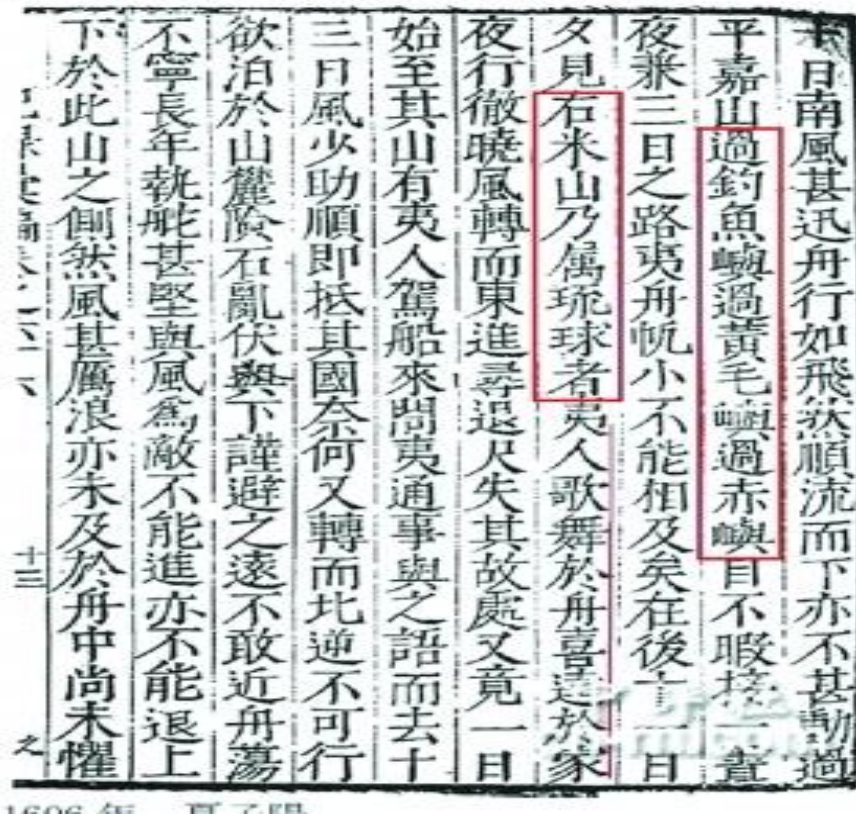 十日南風甚迅舟行如飛然順流而下亦不甚動過
平嘉山過釣魚嶼過黃毛嶼過赤嶼目不暇接一晝
夜兼三日之路夷舟帆小不能相及矣在後十一日
夕見石米山乃属琉球者夷人歌舞於舟喜達於家
夜行徹曉風轉而東進尋退尺失其故處又竟一日
始至其山有夷人駕船來問夷通事與之語而去十
三日風少助順即抵其國奈何又轉而北逆不可行
欲泊於山麓險石亂伏與下謹避之遠不敢近舟蕩
不寧長年執舵甚堅與風爲敵不能進亦不能退上
下於此山之側然風甚厲浪亦未及於舟中尚未懼
十三
之